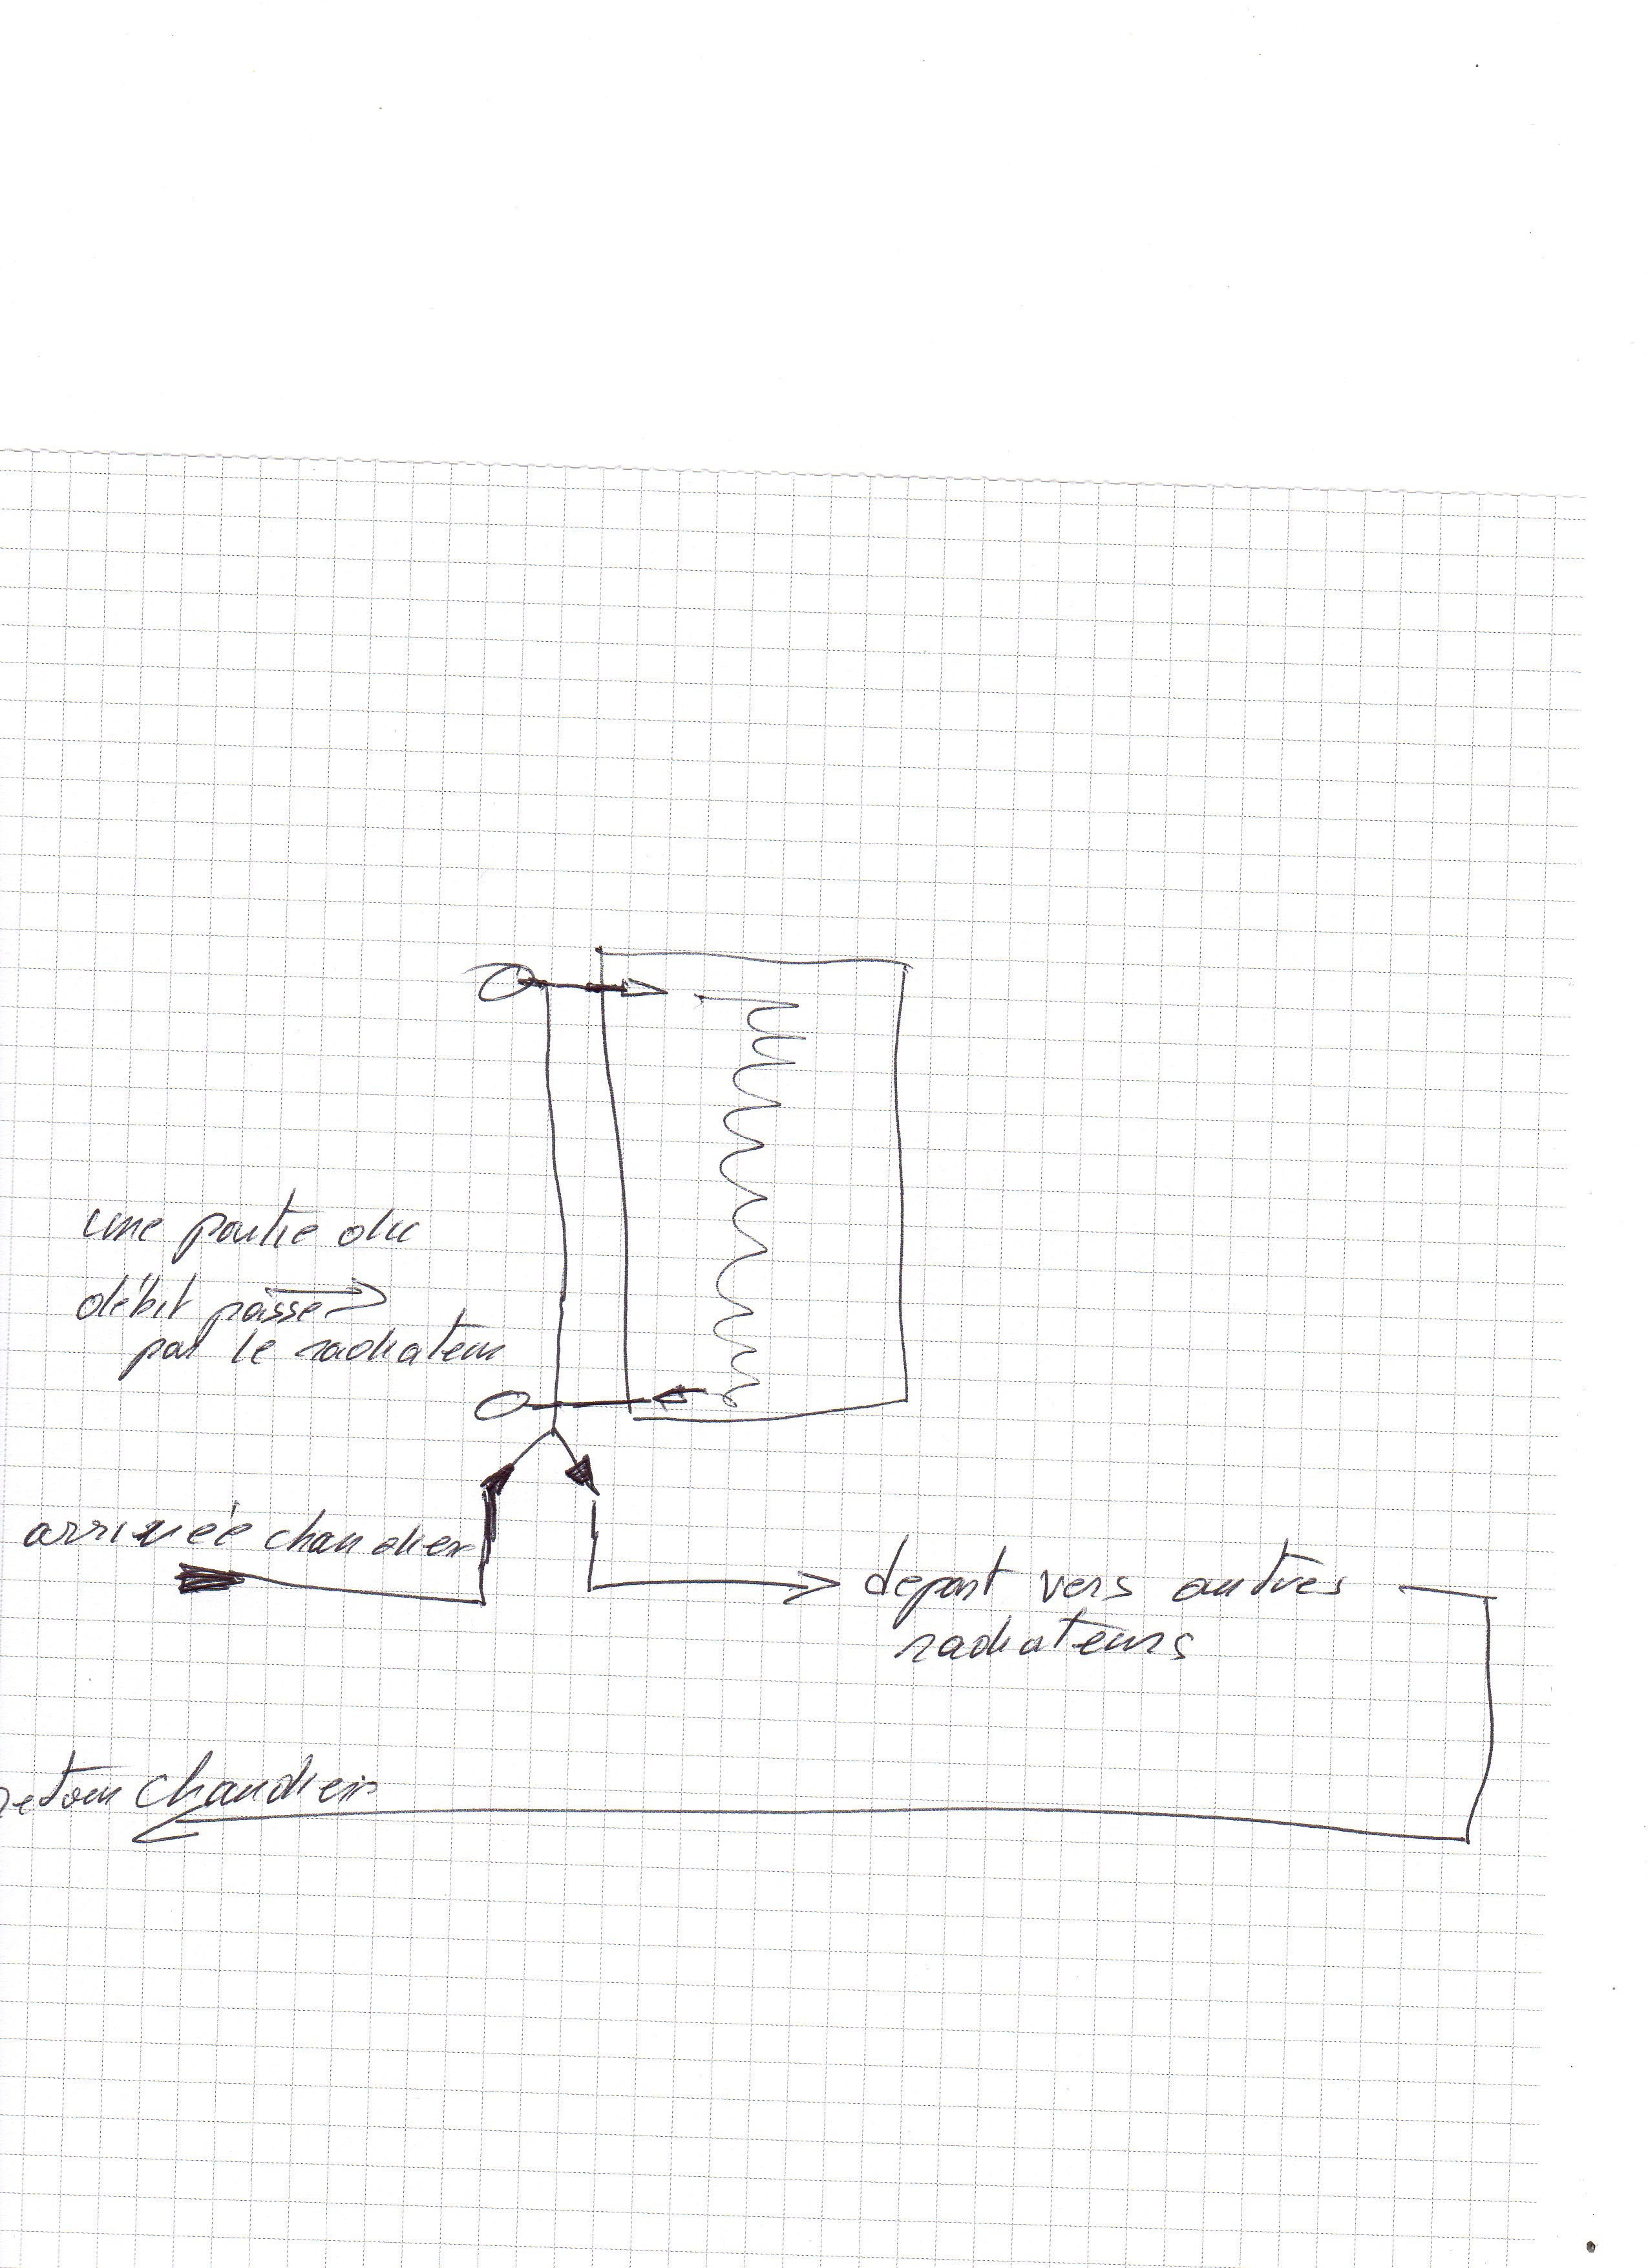 une partie du
débit passe
par le radiateur
arrivée chaudier
depart vers autres
radiateurs
retour chaudier